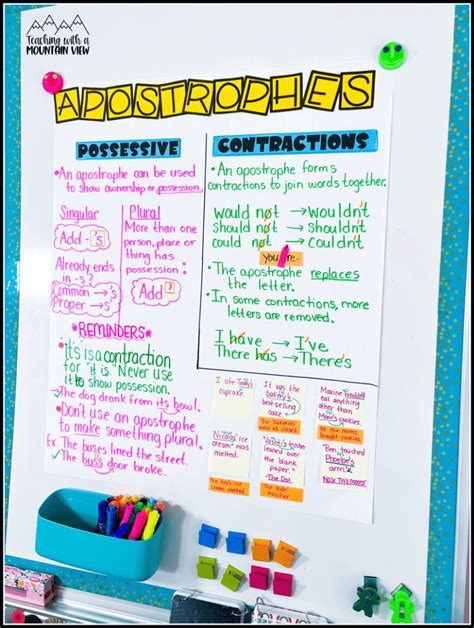 Teaching with a
MOUNTAIN VIEW
APOSTROPHES
POSSESSIVE
• An apostrophe can be used
to show ownership or possession.
Singular
Add -'s
Already ends
in -s?
Common → 's
Proper → 's
Plural
More than one
person, place or
thing has
possession:
Add '
*REMINDERS*
• It's is a contraction
for "it is." Never use
it to show possession.
✓ The dog drank from its bowl.
• Don't use an apostrophe
to make something plural.
Ex. The buses lined the street.
✓ The bus's door broke.
CONTRACTIONS
• An apostrophe forms
contractions to join words together.
would not → wouldn't
should not → shouldn't
could not → couldn't
You're
• The apostrophe replaces
the letter.
• In some contractions, more
letters are removed.
I have → I've
There has → There's
I ate
cupcake.
It was the
bakery's
best-selling
cake.
Maxine
eat anything
other than
Mom's cookies.
cookies
ice
cream" was
melted.
The boy's ice
cream melted
trail
leaned over
the blank
paper."
"The Dot"
The kids'
teacher
"Ben touched
Phoebe's
arm."